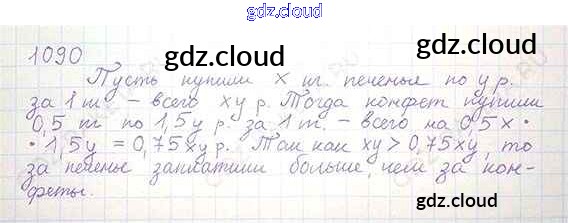 gdz.cloud
1090
gdz.cloud
gdz.cloud
Пусть купили x кг. печенье по y р.
за 1 кг – всего xy р. Тогда конфет купили
0,5 кг по 1,5y р. за 1 кг. – всего на 0,5x ·
· 1,5y = 0,75xy р. Так как xy > 0,75xy, то
за печенье заплатили больше, чем за кон-
феты.
gdz.cloud
gdz.cloud